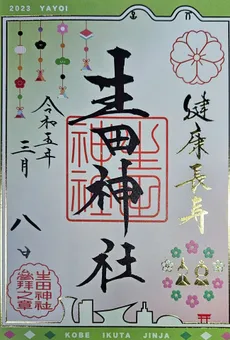 2023 YAYOI
健康長寿
生田神社
生田神社
令和五年
三月
八日
生田神社
参拝之章
KOBE IKUTA JINJA